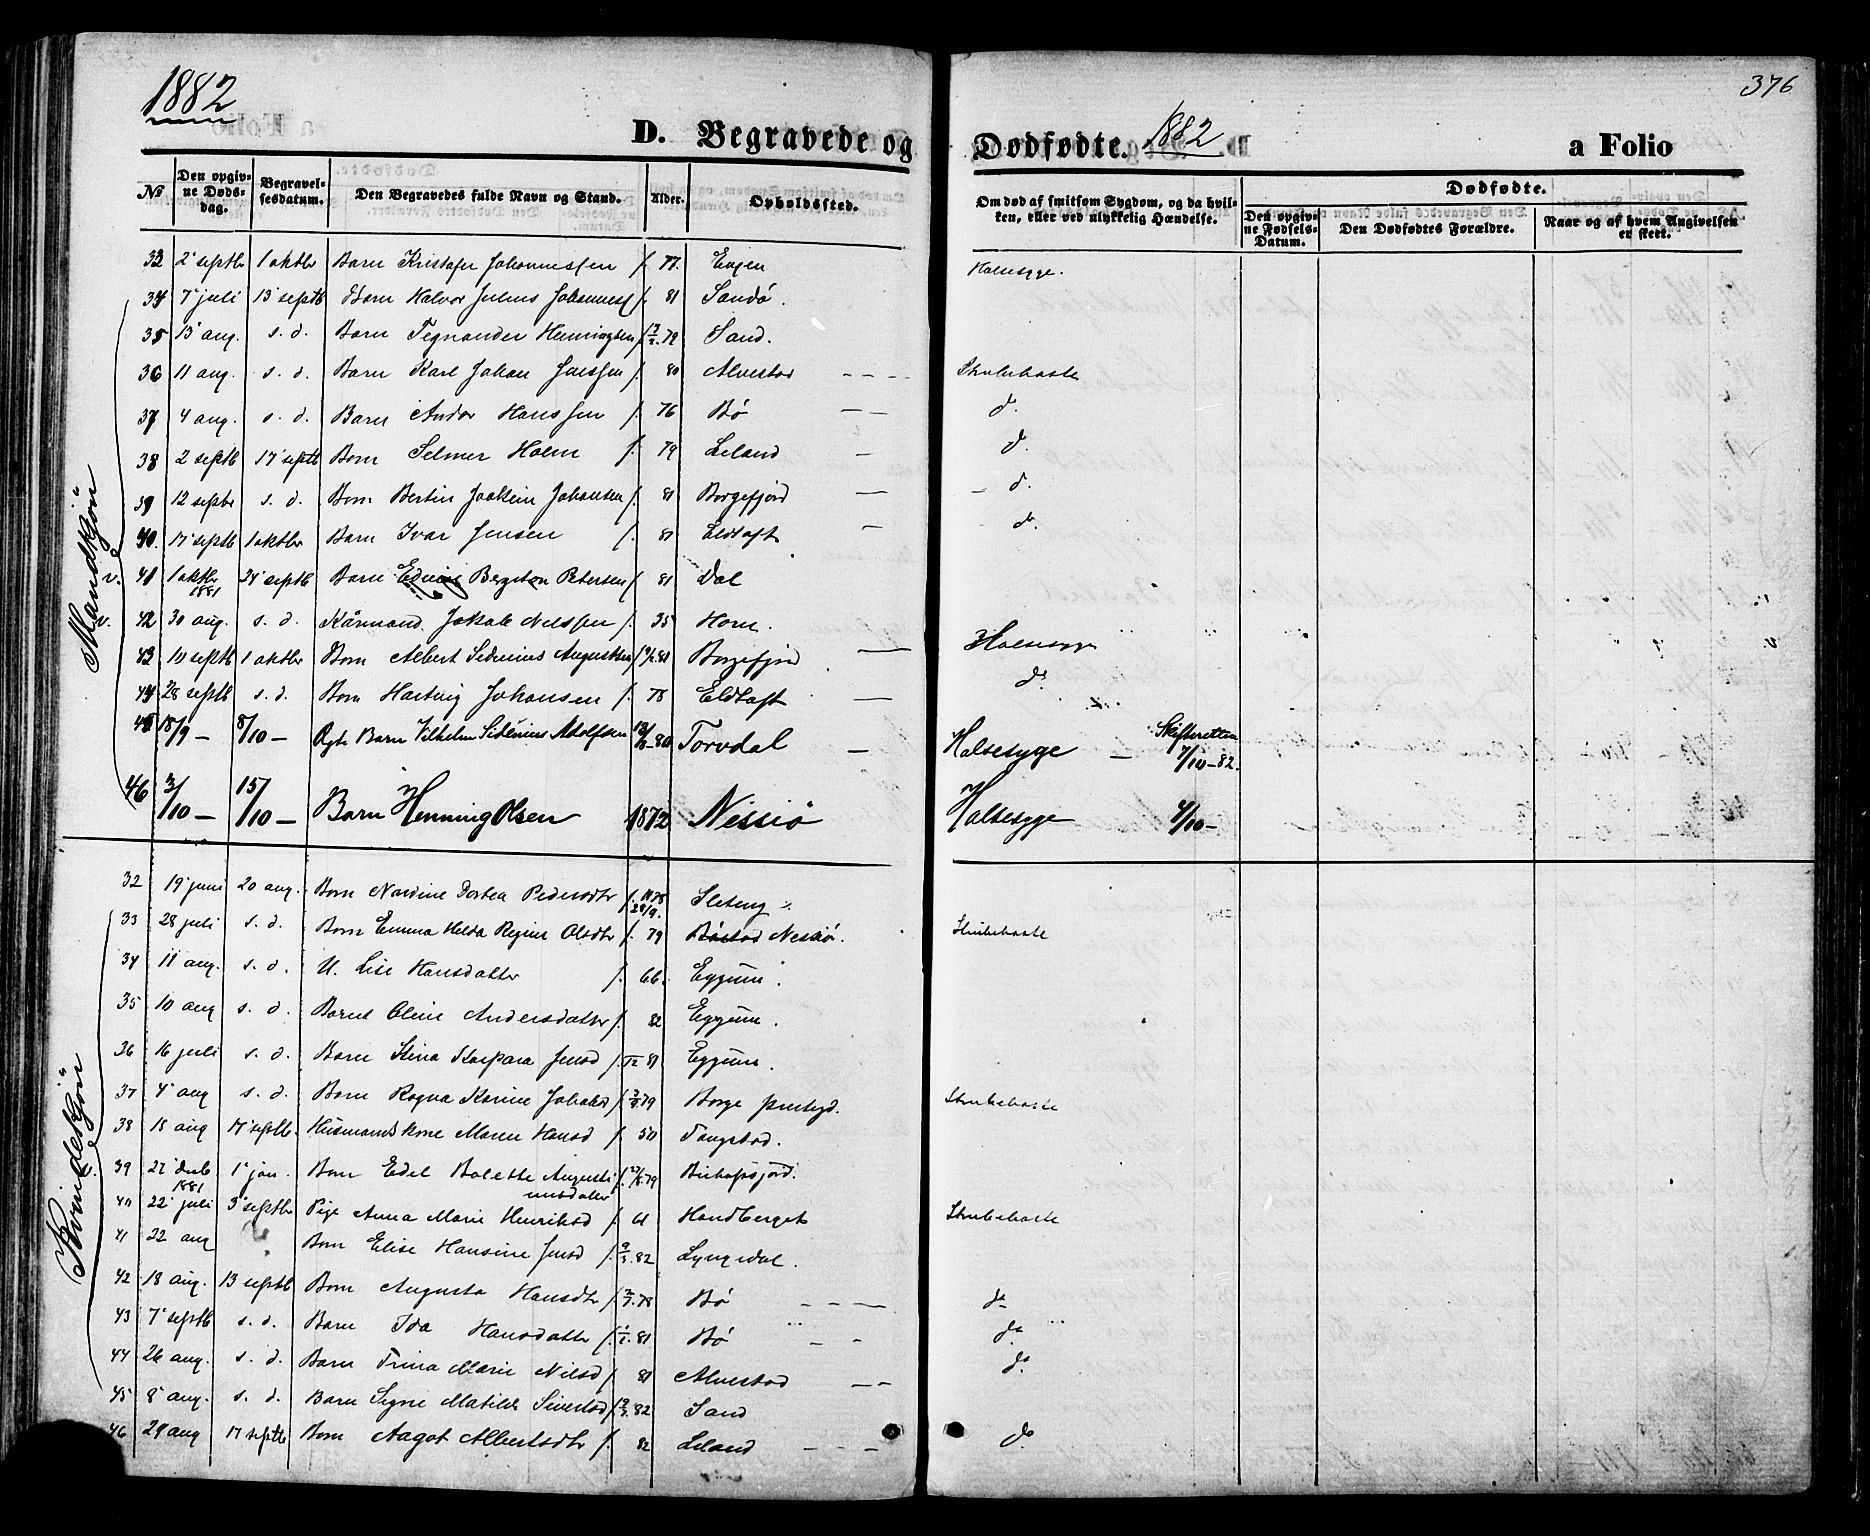 1882
D. Begravede og
Dødfødte. 1882
a Folio
376
№
Den opgivne Dødsdag.
Begravelsesdatum.
Den Begravedes fulde Navn og Stand.
Alder.
Opholdssted.
Om død af smitsom Sygdom, og da hvilken, eller ved ulykkelig Hændelse.
Dødfødte.
Den opgivne Fødsels-Datum.
Den Dødfødtes Forældre.
Naar og af hvem Angivelsen er skeet.
Mandkjön
33 2 septbr 1 oktbr Barn Kristofer Johannessen f. 77. Engen Halsesyge.
34 7 juli 13 septb Barn Halvor Julius Johanness f. 81 Sandö.
35 15 aug. s. d. Barn Tegnander Henningsen f. 79 Sand.
36 11 aug. s. d. Barn Karl Johan Jenssen f. 80 Alvestad Strubehoste
37 4 aug. s. d. Barn Andor Hanssen f. 76 Bö d.
38 2 septb 17 septb Barn Selmer Holm f. 79 Leland d.
39 12 septbr s. d. Barn Bertin Joakim Johansen f. 81 Borgefjord d.
40. 17 septb 1 oktbr Barn Ivar Jensen f. 81 Eldtoft do.
v. 41 1 oktbr 1881 24 septb Barn Edvin Bergeton Petersen f. 81 Dal
v. 42 30 aug. s. d. Kårmand Jakob Nilssen f. 35 Horn.
43 10 septb 1 oktbr Barn Albert Sidenius Augustsen f. 81 Borgefjord Halsesyge
44 28 septb s. d. Barn Hartvig Johansen f. 78 Eldtoft do.
45 18/9 — 8/10 — Ægte Barn Vilhelm Sidenius Adolfsen 80 Torvdal — Halsesyge — Skifteretten 7/10-82.
46 3/10 — 15/10 — Barn Henning Olsen 1872 Nessiö Halsesyge 4/10-
Kvindekjön
32 19 juni 20 aug. Barn Nardine Dortea Pedersdtr f. 1878 28/9. Sleteng
33 28 juli s. d. Barn Emma Helda Regine Olsdtr f. 79 Bästad Nessiö. Strubehoste
34 11 aug. s. d. U. Lise Hansdatter f. 66. Eggum.
35 10 aug s. d. Barnet Oline Andersdatter f. 82 Eggum.
36 16 juli s. d. Barn Stina Kaspara Jensd f. 12 81 Eggum.
37 4 aug s. d. Barn Ragna Karine Jakobsd f. 79 Borge prestegd. Strubehoste
38 18 aug 17 septb. Husmandskone Maren Hansd f. 50 Tangstad.
v. 39 27 decb 1881 1 jan. Barn Edel Bolette Augustinusdatter f. 79 Buksfjord.
40 22 juli 3 septbr Pige Anna Marie Henriksd f. 61 Handberget Strubehoste
41 22 aug Barn Elise Hansine Jensd f. 9/3. 82 Lyngedal.
42 18 aug. 13 septb Barn Augusta Hansdtr f. 78 Bö do
43 7 septb s. d. Barn Ida Hansdatter f. 81 Bö do
44 26 aug. s. d. Barn Trina Marie Nilsd f. 81 Alvestad do
45 8 aug. s. d. Barn Signe Matilde Sivertsd f. 82 Sand
46 29 aug 17 septb Barn Aagot Albertsdtr f. 82 Leland do